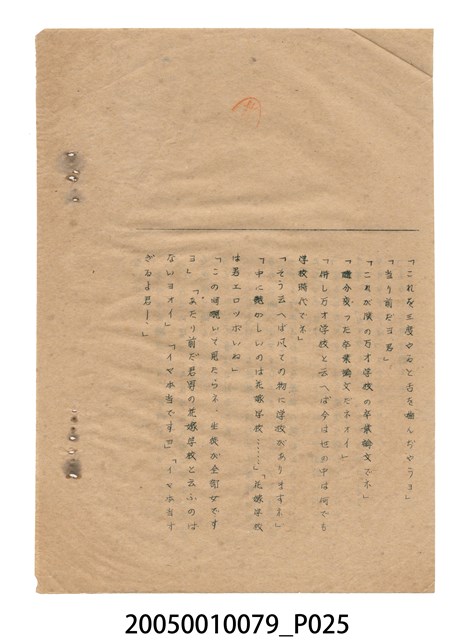 「これを三度やると舌を噛んぢやうヨ」
「当り前だヨ君」
「これが僕の万才学校の卒業論文でネ」
「随分変つた卒業論文だネオイ」
「併し万才学校と云へば今は世の中は何でも
学校時代でネ」
「そう云へば凡ての物に学校がありますネ」
「中に艶かしいのは花嫁学校……」「花嫁学校
は君エロツポいね」
「この間覗いて見たらネ、生徒が全部女です
ヨ」「あたり前だ君男の花嫁学校と云ふのは
ないヨオイ」「イヤ本当ですヨ」「イヤ本当す
ぎるよ君ー！」
20050010079_P025